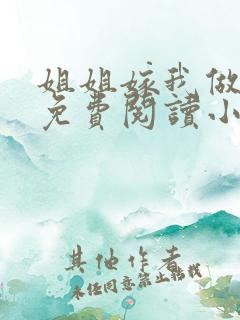 姐姐嫁我做
免費閱讀小
其他作者
未经同意禁止转载